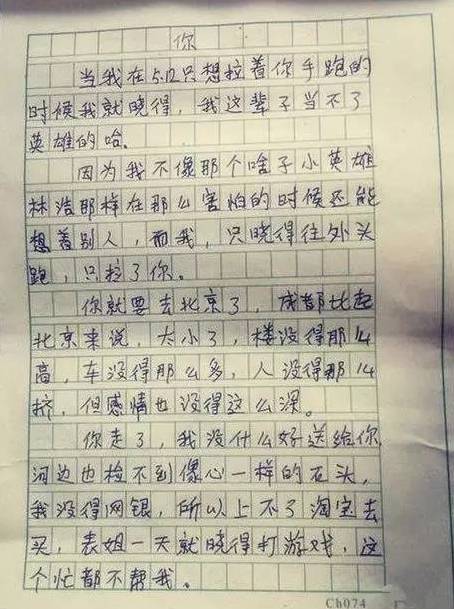 你
当我在5.12只想拉着你手跑的
时候我就晓得，我这辈子当不了
英雄的哈。
因为我不像那个啥子小英雄
林浩那样在那么害怕的时候还能
想着别人，而我，只晓得往外头
跑，只拉了你。
你就要去北京了，成都比起
北京来说，太小了，楼没得那么
高，车没得那么多，人没得那么
挤，但感情也没得这么深。
你走了，我没什么好送给你，
河边也捡不到像心一样的石头，
我没得网银，所以上不了淘宝去
买，表姐一天就晓得打游戏，这
个忙都不帮我。
Ch074